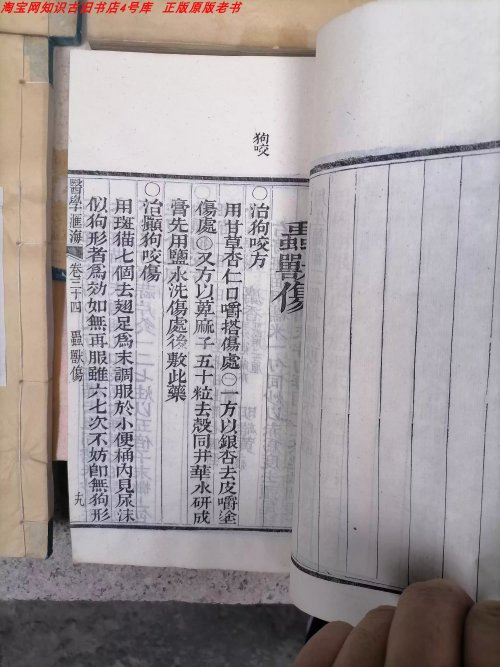 淘宝网知识古旧书店4号库 正版原版老书
狗咬
蟲獸傷
○治狗咬方
用甘草杏仁口嚼搭傷處○一方以銀杏去皮嚼塗
傷處○又方以萆麻子五十粒去殼同井華水研成
膏先用鹽水洗傷處後敷此藥
○治癲狗咬傷
用斑猫七個去翅足為末調服於小便桶內見尿沫
似狗形者為効如無再服雖六七次不妨卽無狗形
醫學滙海 卷三十四 蟲獸傷 十九